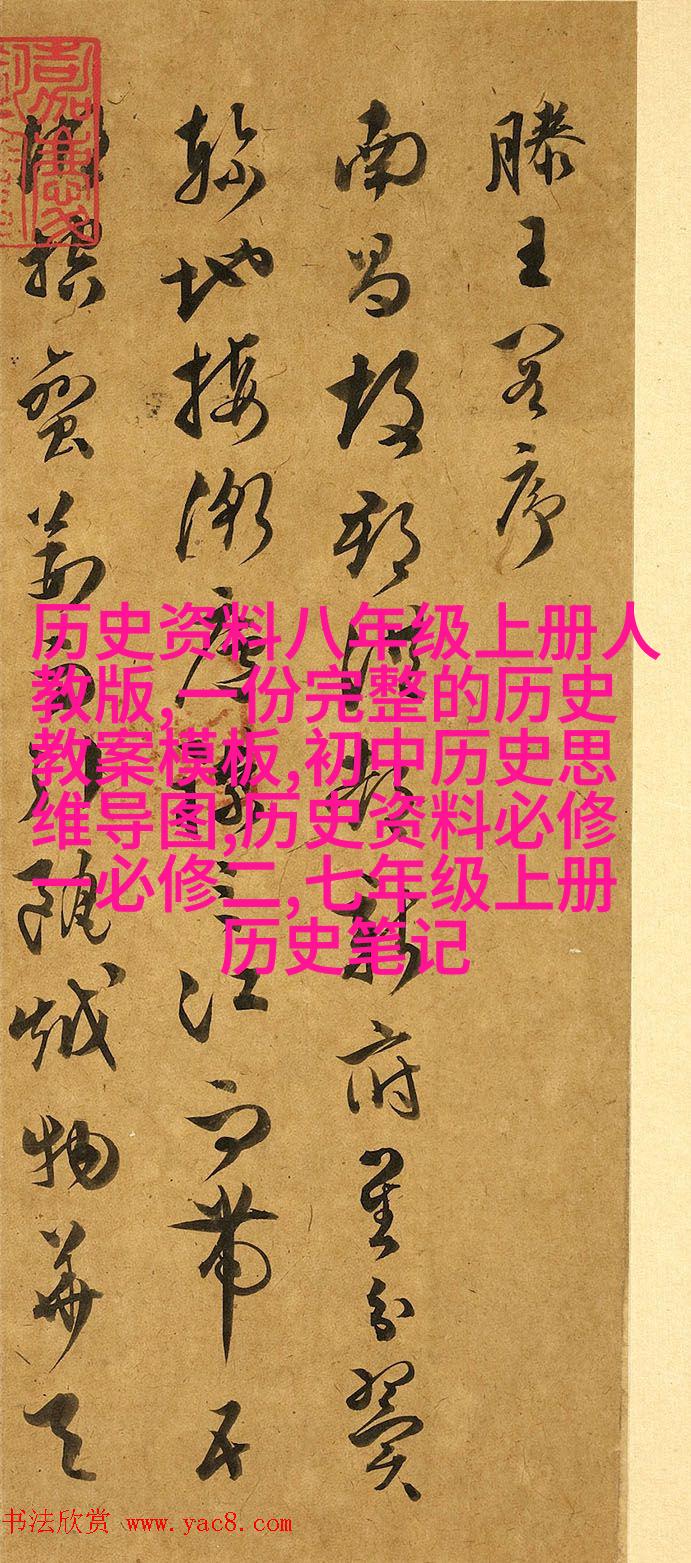 滕王閣序
南昌故郡洪都新府星分翼
軫地接衡廬襟三江而帶五
湖控蠻荊而引甌越物華天
历史资料八年级上册人
教版,一份完整的历史
教案模板,初中历史思
维导图,历史资料必修
一必修二,七年级上册
历史笔记
书法欣赏 www.yac8.com